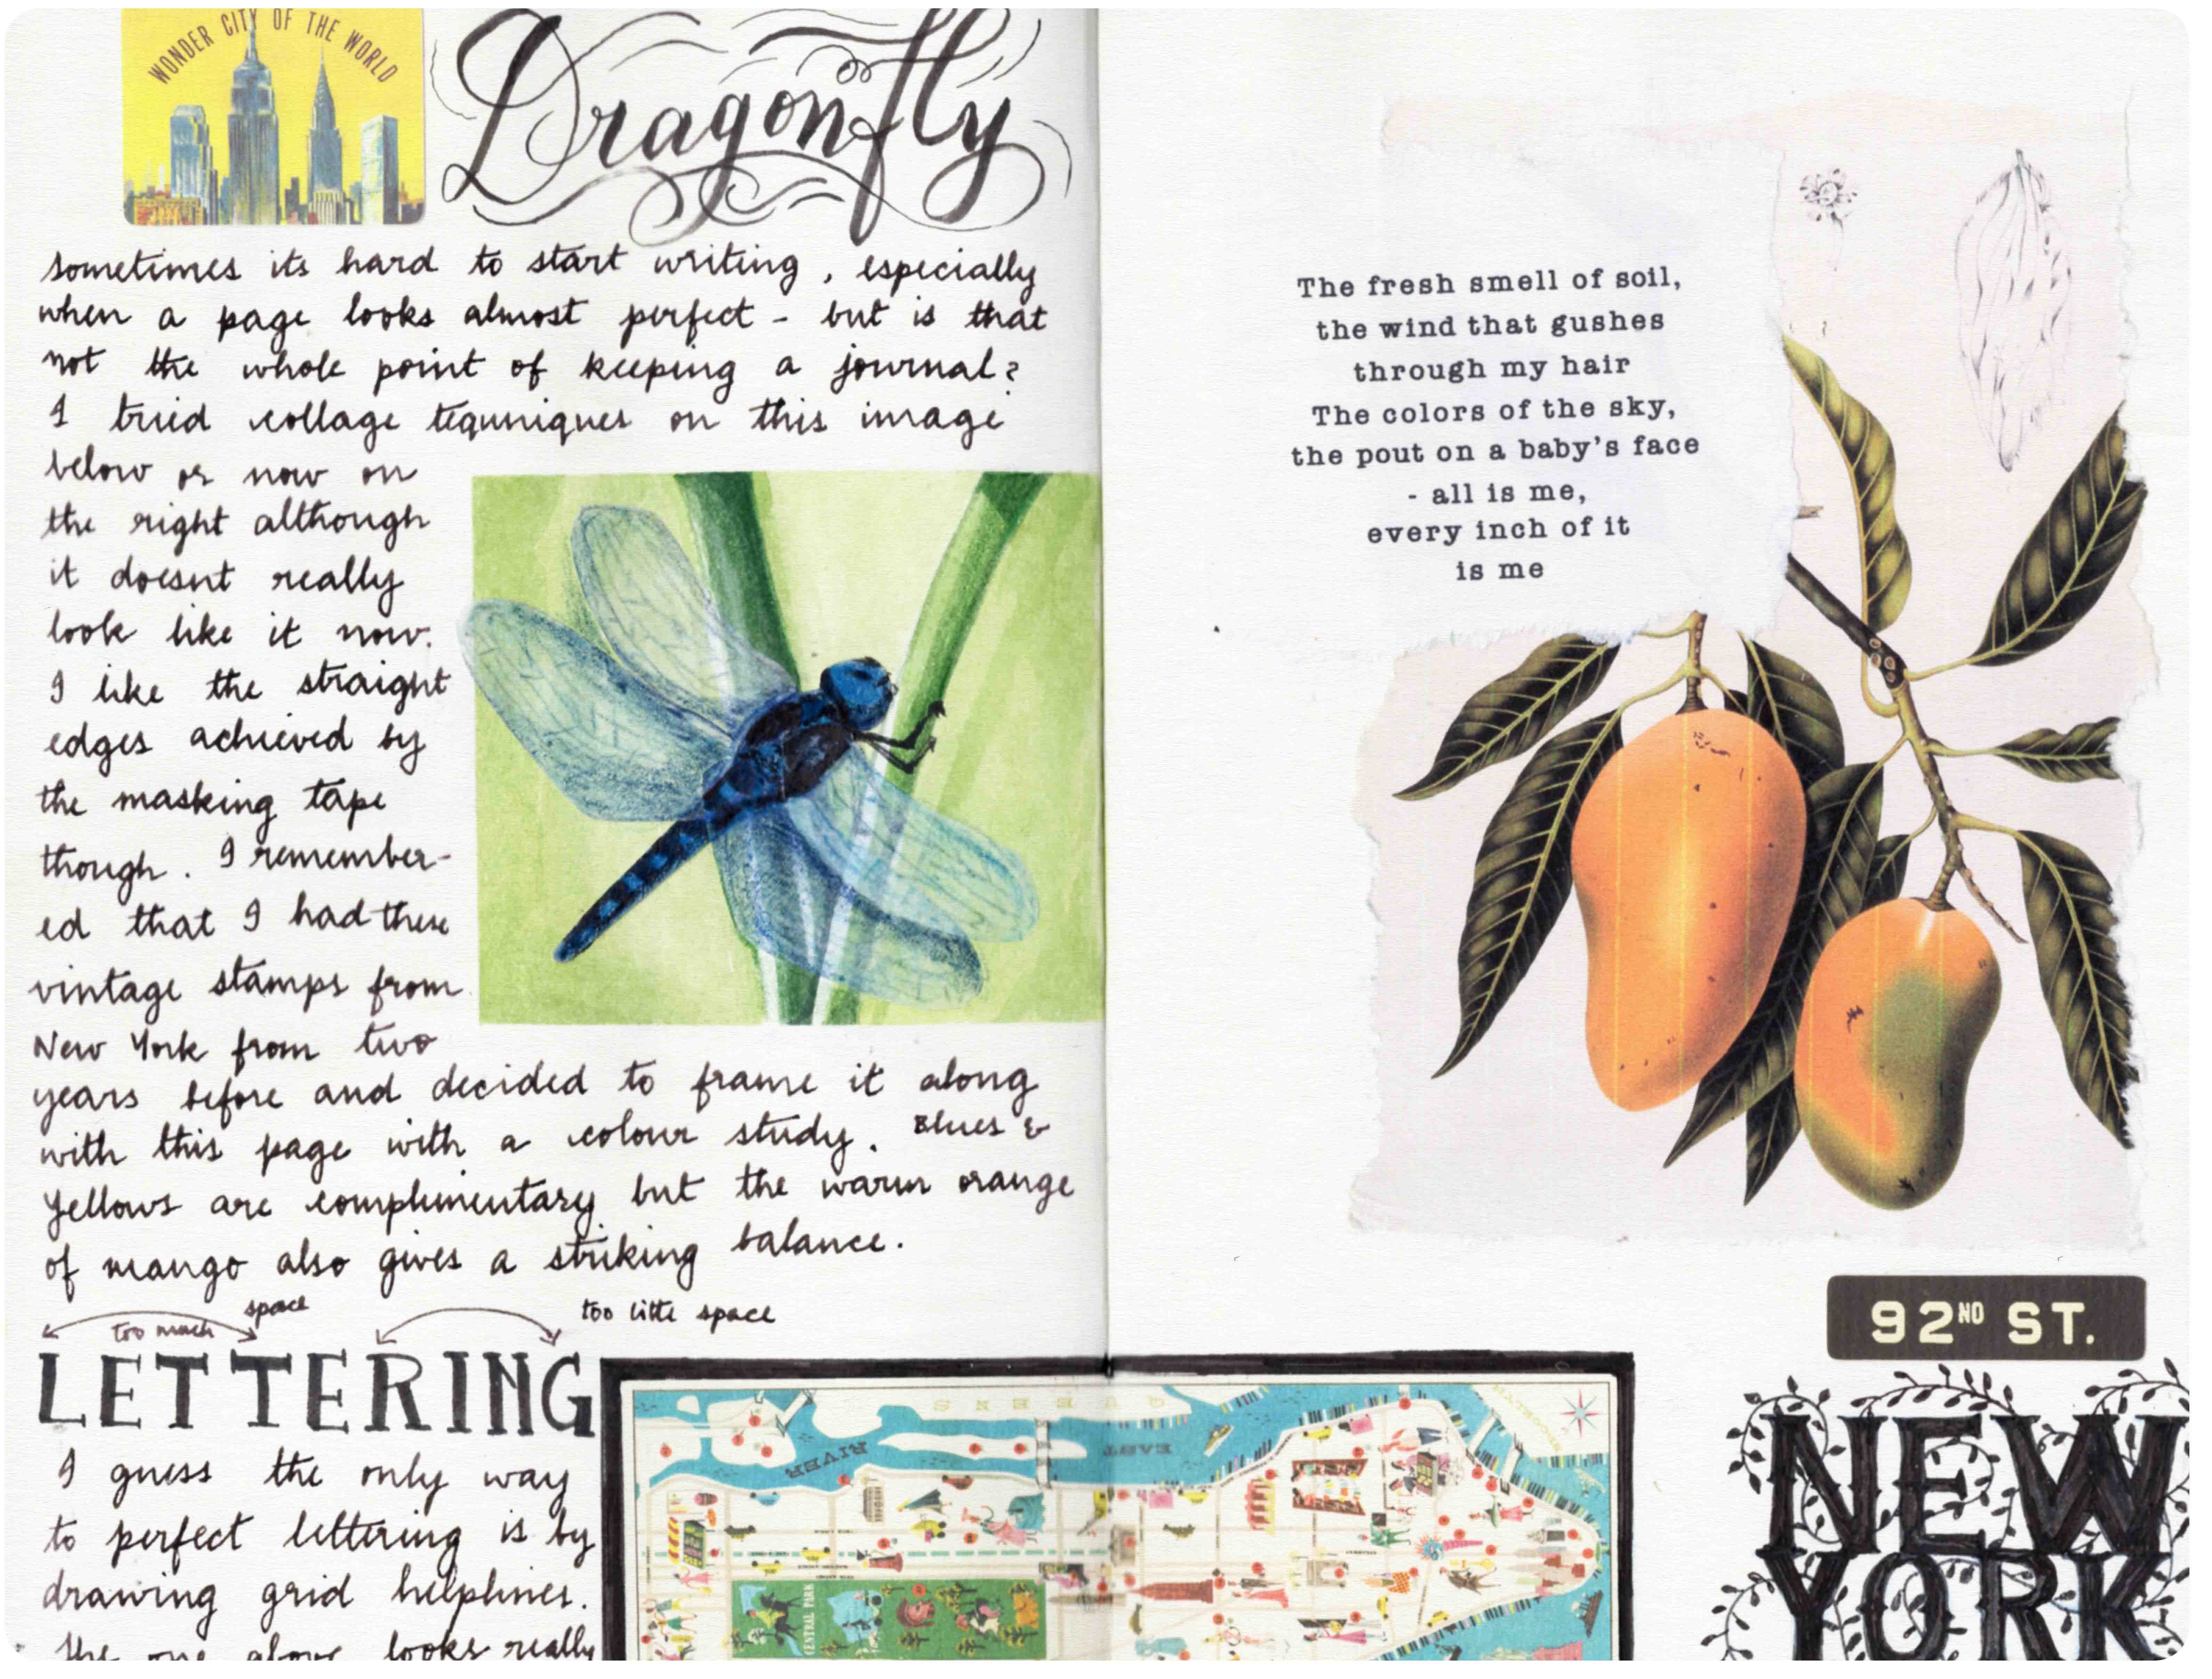 WONDER CITY OF THE WORLD
Dragonfly
sometimes its hard to start writing, especially
when a page looks almost perfect - but is that
not the whole point of keeping a journal?
I tried collage tequniques on this image
below or now on
the right although
it doesnt really
look like it now.
I like the straight
edges achieved by
the masking tape
though. I remember-
ed that I had these
vintage stamps from
New York from two
years before and decided to frame it along
with this page with a colour study. Blues &
Yellows are complimentary but the warm orange
of mango also gives a striking balance.
too much space
too little space
LETTERING
I guess the only way
to perfect lettering is by
drawing grid helplines.
the one above looks really
The fresh smell of soil,
the wind that gushes
through my hair
The colors of the sky,
the pout on a baby's face
- all is me,
every inch of it
is me
92ND ST.
NEW
YORK
QUEENS
EAST
RIVER
BROOKLYN
CENTRAL PARK